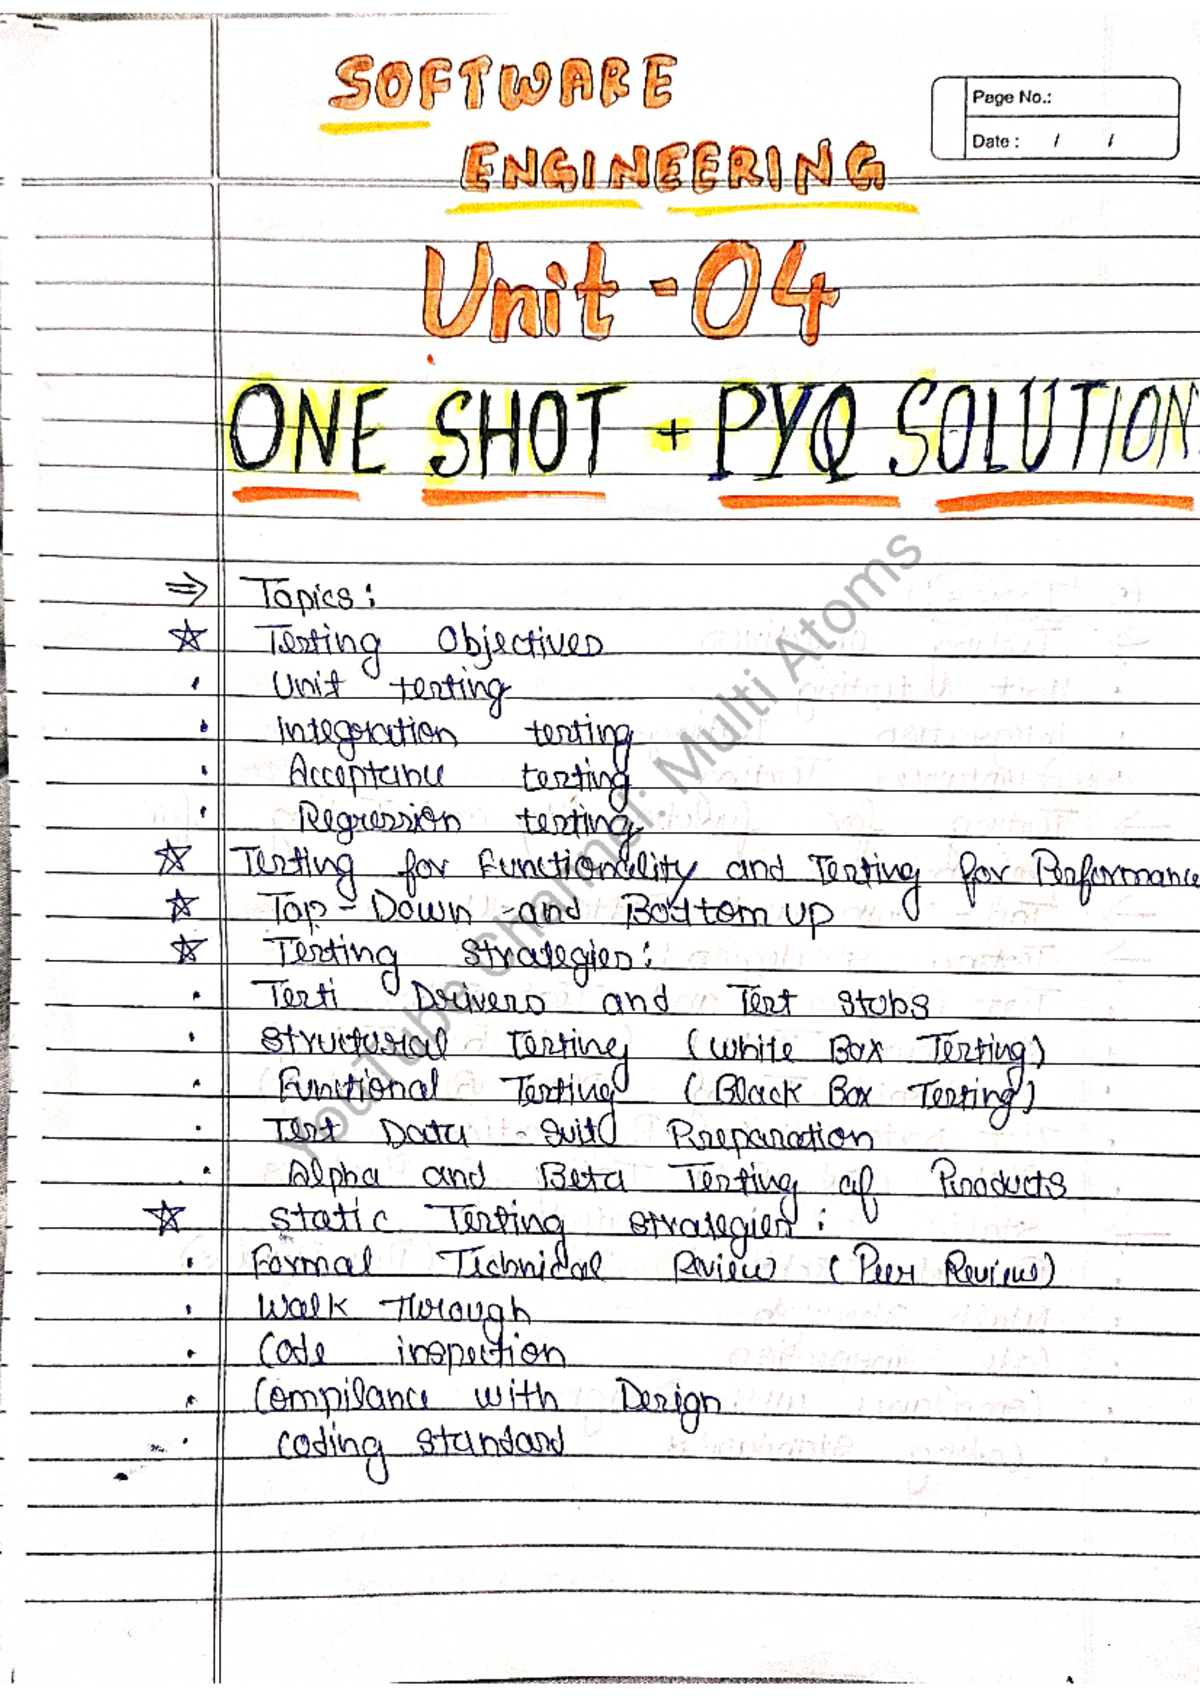 SOFTWARE
ENGINEERING
Page No.:
Date : / /
Unit - 04
ONE SHOT + PYQ SOLUTION
⇒ Topics :
☆ Testing Objectives
• Unit testing
• Integration testing
• Acceptance testing
• Regression testing
☆ Testing for Functionality and Testing for Performance
☆ Top - Down and Bottom up
☆ Testing Strategies :
• Testi Drivers and Test Stubs
• Structural Testing (White Box Testing)
• Functional Testing (Black Box Testing)
• Test Data Suit Preparation
• Alpha and Beta Testing of Products
☆ Static Testing Strategies :
• Formal Technical Review (Peer Review)
• Walk Through
• Code inspection
• Compilance with Design
• Coding Standard
YouTube Channel: Multi Atoms